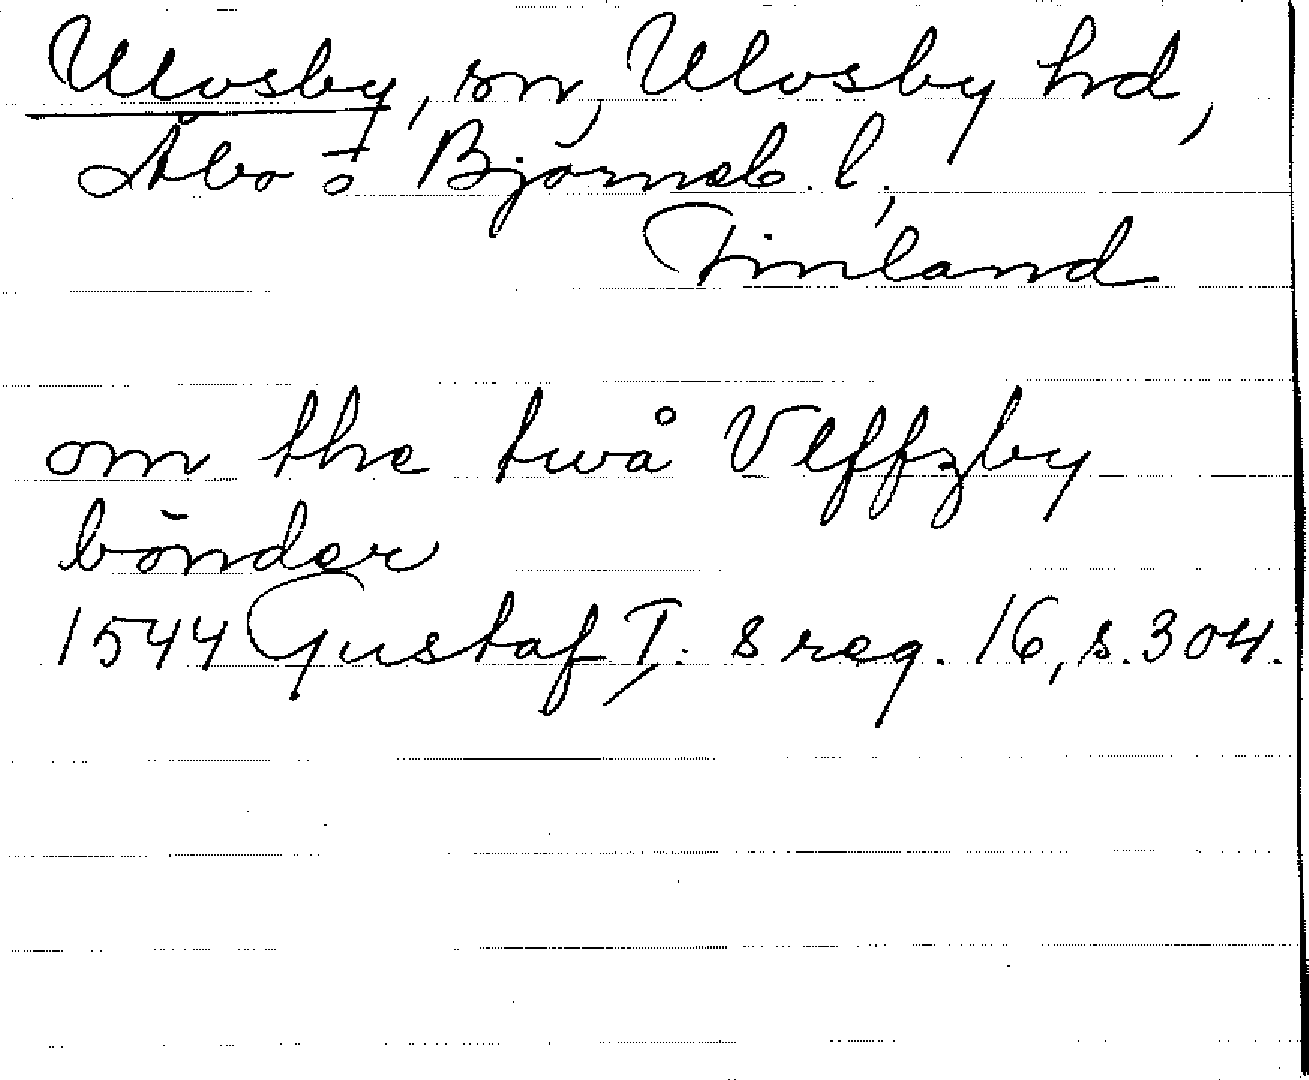 Ulvsby, sn, Ulvsby hd,
Åbo o Björneb. l.,
Finland
om the twå Vlffzby
bönder
1544 Gustaf I. s reg. 16, s. 304.